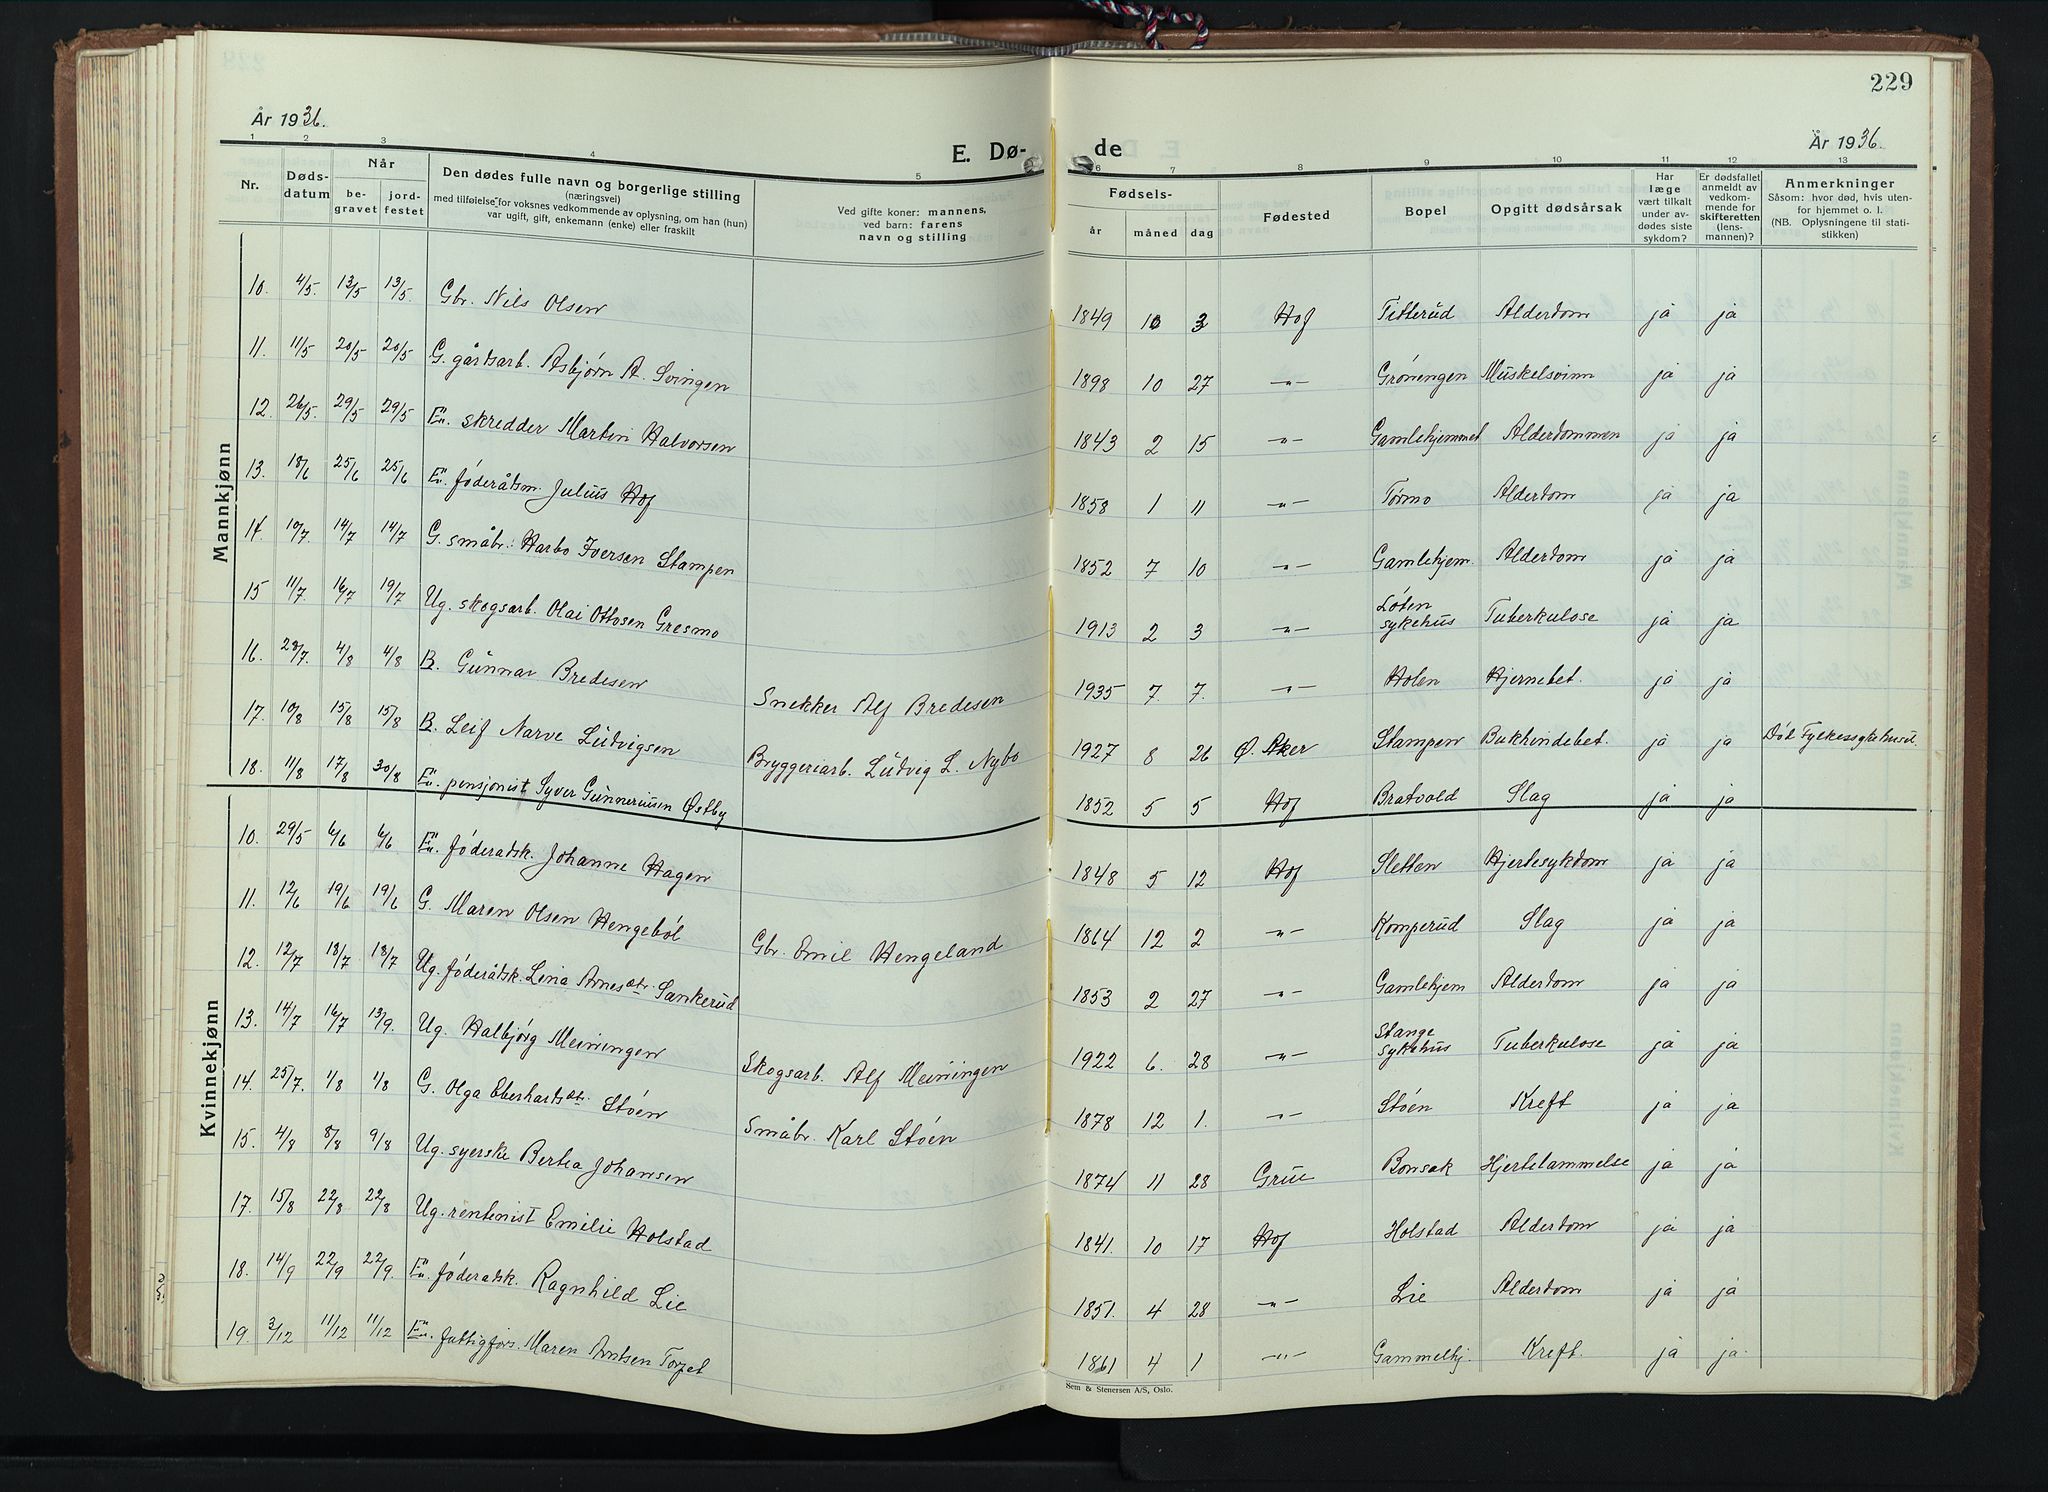 229
År 1936.
E. Dø-
de
År 1936.
1 2 3 4 5 6 7 8 9 10 11 12 13
Nr.
Døds-
datum
Når
be-
gravet
jord-
festet
Den dødes fulle navn og borgerlige stilling
(næringsvei)
med tilføielse for voksnes vedkommende av oplysning, om han (hun)
var ugift, gift, enkemann (enke) eller fraskilt
Ved gifte koner: mannens,
ved barn: farens
navn og stilling
Fødsels-
år måned dag
Fødested
Bopel
Opgitt dødsårsak
Har
læge
vært tilkalt
under av-
dødes siste
sykdom?
Er dødsfallet
anmeldt av
vedkom-
mende for
skifteretten
(lens-
mannen)?
Anmerkninger
Såsom: hvor død, hvis uten-
for hjemmet o. l.
(NB. Oplysningene til stati-
stikken)
Mannkjønn
10. 4/5. 13/5 13/5. Gbr. Nils Olsen 1849 10 3 Hof Titterud Alderdom ja ja
11. 11/5 20/5 20/5 G. gårdsarb. Asbjørn A. Svingen 1898 10 27 -"- Grøningen Muskelsvinn ja ja
12. 26/5. 29/5 29/5 En. skredder Martin Halvorsen 1843 2 15 -"- Gamlehjemmet Alderdommen ja ja
13. 18/6 25/6 25/6 En. føderåtsm. Julius Hof 1858 1 11 -"- Tørmo Alderdom ja ja
14. 10/7. 14/7 14/7 G. småbr.: Harbo Iversen Stampen 1852 7 10 -"- Gamlehjem. Alderdom ja ja
15 11/7. 16/7 19/7 Ug. skogsarb. Olai Ottosen Gresmo 1913 2 3 -"- Løten sykehus Tuberkulose ja ja
16. 28/7. 4/8 4/8 B. Gunnar Bredesen Snekker Alf Bredesen 1935 7. 7. -"- Holen Hjernebet. ja ja
17. 10/8 15/8 15/8 B. Leif Narve Ludvigsen Bryggeriarb. Ludvig L. Nybo 1927 8 26 Ø. Aker Stampen Bukhindebet. ja ja Død Fylkessykehuset.
18. 11/8 17/8 30/8 En. pensjonist Syver Gunneriusen Østby 1852 5 5 Hof Bratvold Slag ja ja
Kvinnekjønn
10. 29/5 6/6 6/6 En. føderadsk. Johanne Hagen 1848 5 12 Hof Sletten Hjertesykdom ja ja
11. 12/6 19/6 19/6 G. Maren Olsen Hengebøl Gbr. Emil Hengeland 1864 12 2 -"- Komperud Slag ja ja
12. 12/7 18/7 18/7 Ug. føderådsk. Lina Arnesdtr. Sankerud 1853 2 27 -"- Gamlehjem Alderdom ja ja
13. 14/7 16/7 13/9. Ug. Halbjørg Meiningen Skogsarb. Alf Meiningen 1922 6. 28 -"- Stange sykehus Tuberkulose ja ja
14. 25/7. 1/8 1/8 G. Olga Eberhardsdtr. Støen Småbr. Karl Støen 1878 12 1. -"- Støen Kreft ja ja
15. 4/8 8/8 9/8 Ug. syerske Bertea Johansen 1874 11 28 Grue Bonsak Hjertelammelse ja ja
17. 15/8 22/8 22/8 Ug. rentenist Emilie Holstad 1841. 10 17 Hof Holstad Alderdom ja ja
18. 14/9 22/9 22/9. En. føderadsk. Ragnhild Lie 1851. 4 28 -"- Lie Alderdom ja ja
19. 3/12 11/12 11/12 En. fattigfors. Maren Arntsen Torpet 1861 4 1 -"- Gammelhj. Kreft. ja ja.
Sem & Stenersen A/S, Oslo.